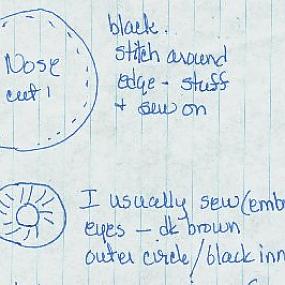 Nose
cut 1
black.
stitch around
edge - stuff
+ sew on
I usually sew (emb
eyes - dk brown
outer circle/black inn